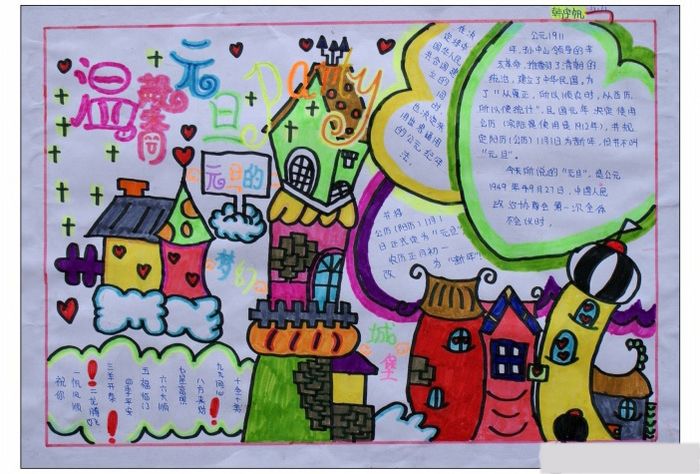 温馨
元旦party
元旦的
梦幻
城堡
公元1911
年,孙中山领导的辛
亥革命,推翻了清朝的
统治,建立了中华民国,为
了"从夏正,所以顺农时,从西历,
所以便统计",民国元年决定使用
公历(实际是使用是1912年),并规
定阳历(公历)1月1日为"新年",但并不叫
"元旦"。
今天所说的"元旦",是公元
1949年9月27日,中国人民
政治协商会第一次全体
会议时,
在决
定建立
中华人民
共和国建
立的同
时,
也决定采
用世界通用
的公元纪年
法,
公历(阳历)1月1
日正式定为"元旦"
农历正月初一
改为"新年"
祝你
一帆风顺
二龙腾飞
三羊开泰
四季平安
五福临门
六六大顺
七星高照
八方来财
九九同心
十全十美